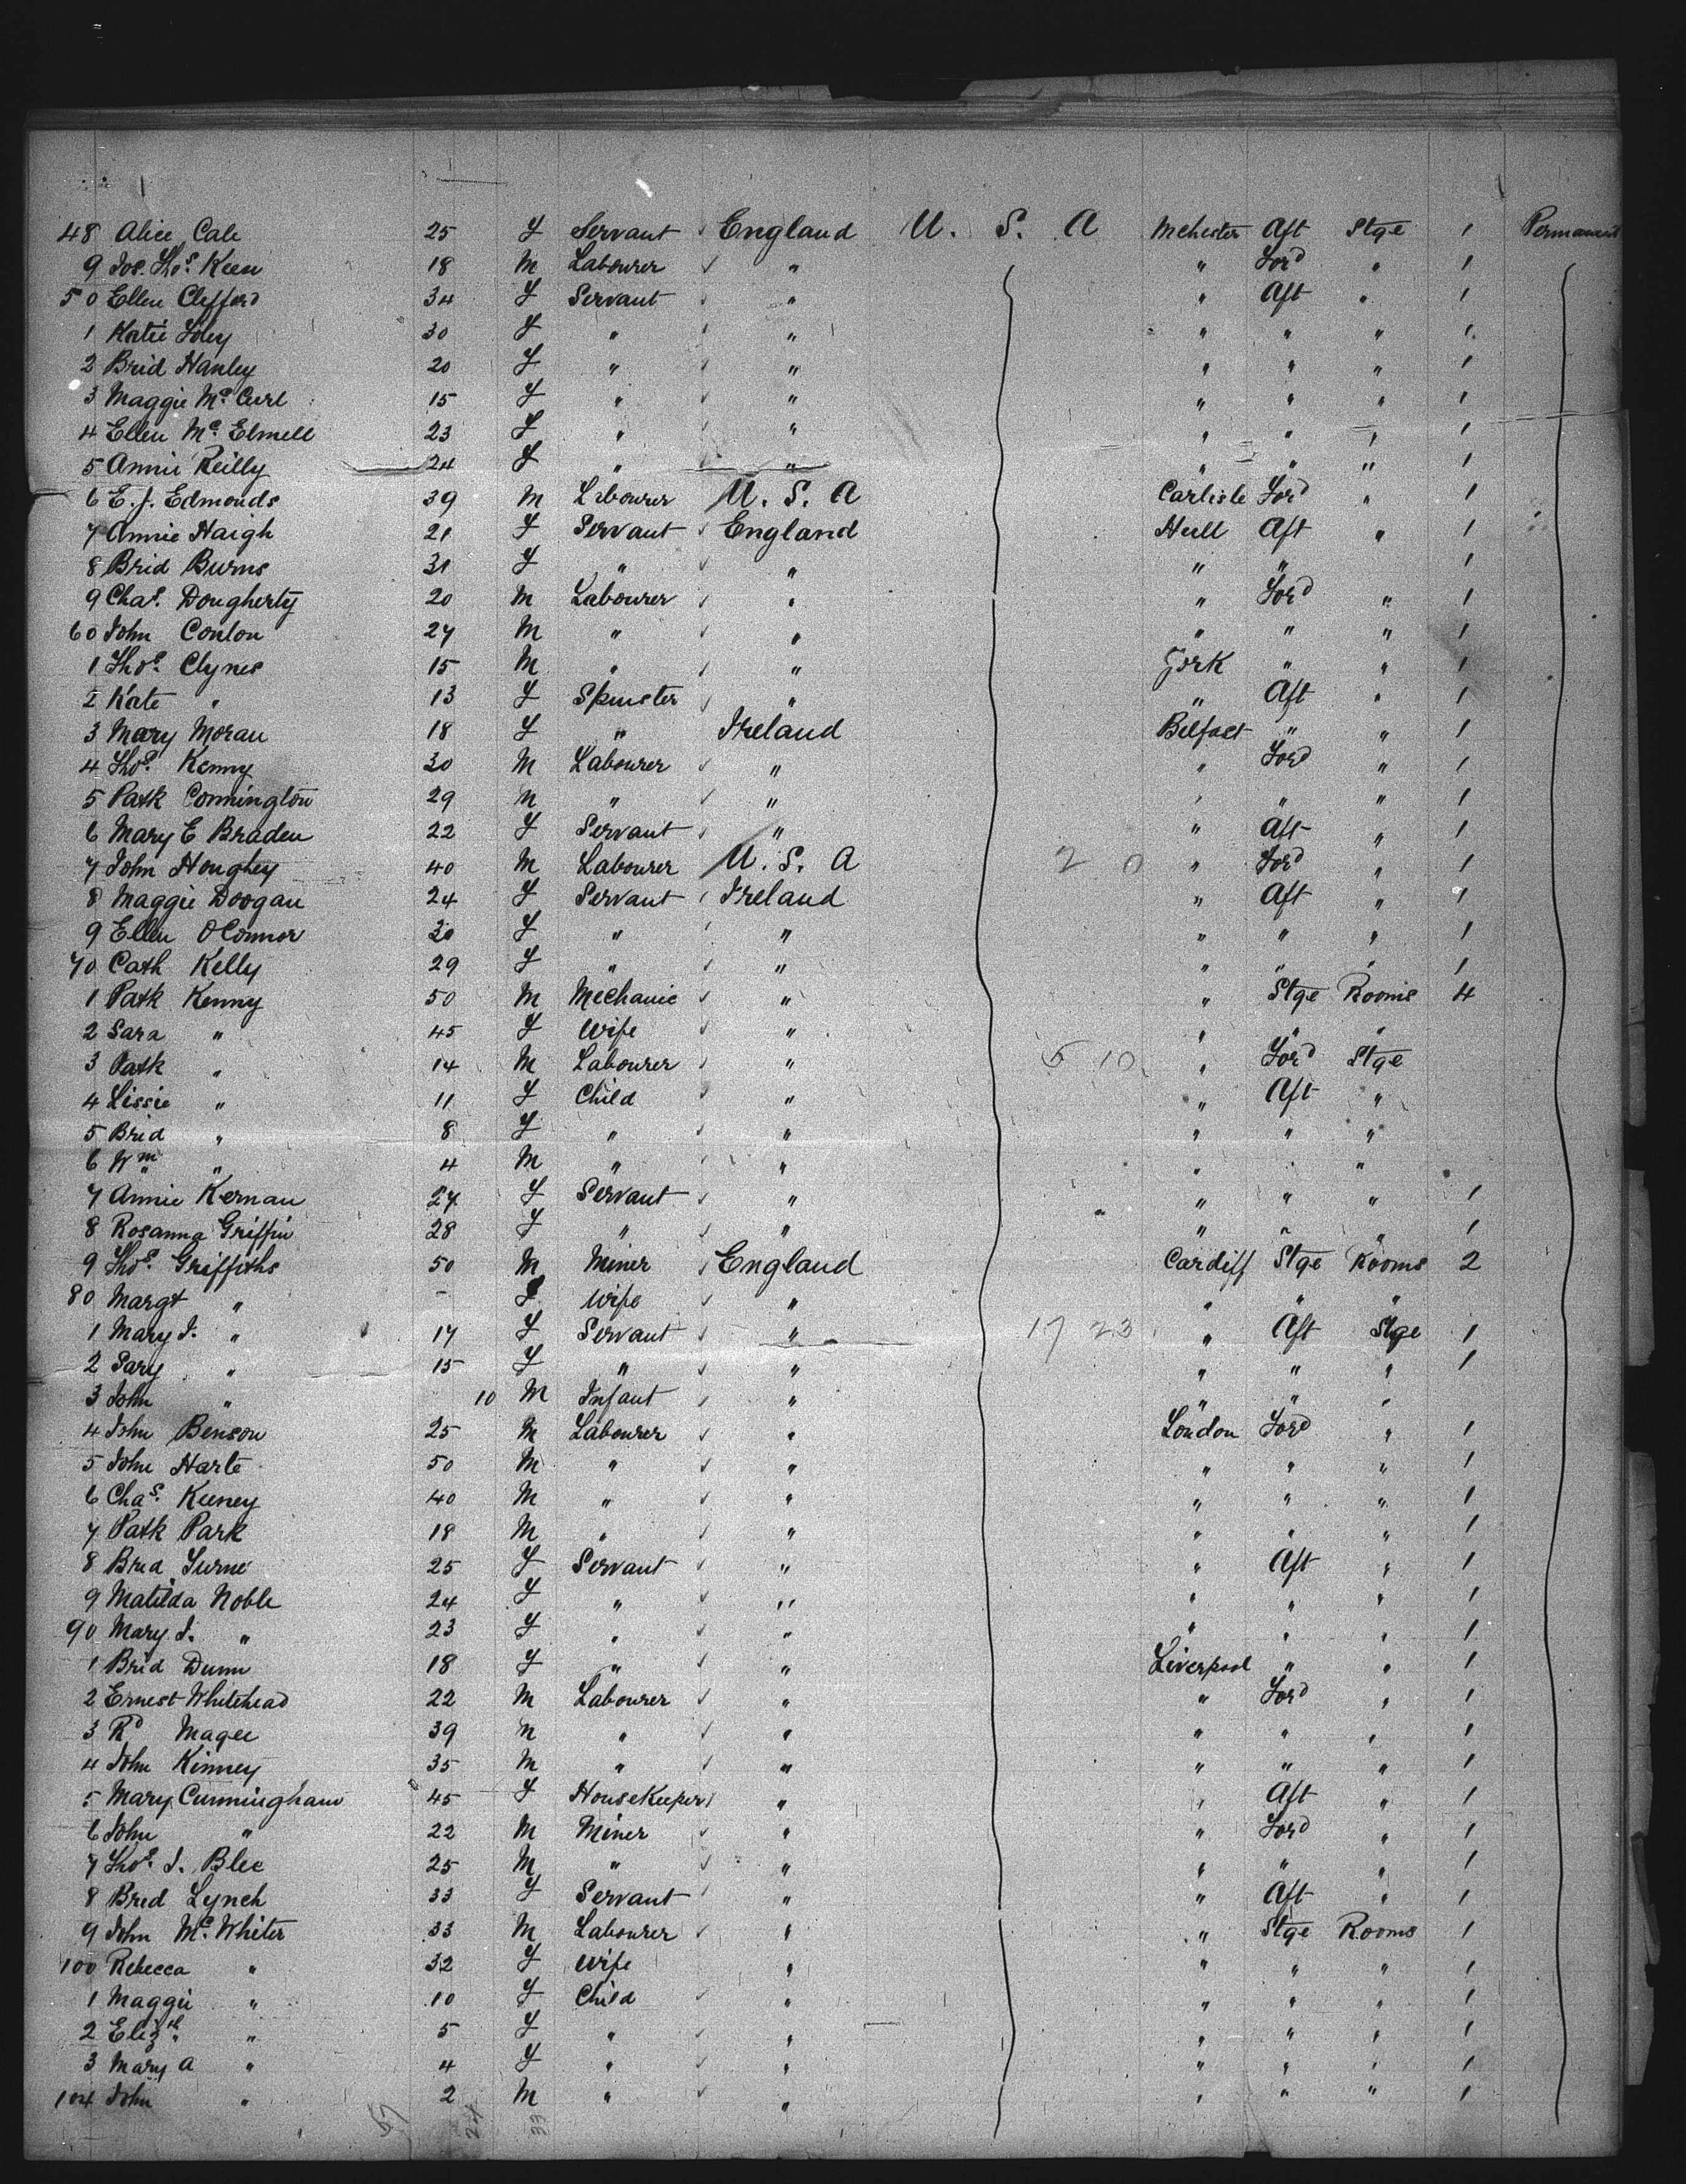 48 Alice Cale 25 F Servant England U. S. A Mchester Aft Stge 1 Permanent
9 Jos. Thos. Keen 18 M Labourer " " Ford " 1
50 Ellen Clifford 34 F Servant " " Aft " 1
1 Katie Foley 30 F " " " " " 1
2 Brid Hanley 20 F " " " " " 1
3 Maggie Mc 15 F " " " " " 1
4 Ellen Mc. Elmell 23 F " " " " " 1
5 Annie Reilly 24 F " " " " " 1
6 E. J. Edmonds 39 M Labourer U. S. A Carlisle Ford " 1
7 Annie Haigh 21 F Servant England Hull Aft " 1
8 Brid Burns 31 F " " " " 1
9 Chas. Dougherty 20 M Labourer " " Ford " 1
60 John Conlon 27 M " " " " " 1
1 Thos. Clynes 15 M " " York " " 1
2 Kate " 13 F Spinster " " Aft " 1
3 Mary Moran 18 F " Ireland Belfast " " 1
4 Thos. Kenny 30 M Labourer " " Ford " 1
5 Patk Connington 29 M " " " " " 1
6 Mary E Braden 22 F Servant " " Aft " 1
7 John Houghey 40 M Labourer U. S. A 2 0 " Ford " 1
8 Maggie Doogan 24 F Servant Ireland " Aft " 1
9 Ellen OConnor 30 F " " " " " 1
70 Cath Kelly 29 F " " " " " 1
1 Patk Kenny 50 M Mechanic " " Stge Rooms 4
2 Sara " 45 F Wife " " " "
3 Patk " 14 M Labourer " 5 10 " Ford Stge
4 Lissie " 11 F Child " " Aft "
5 Brid " 8 F " " " " "
6 Wm " 4 M " " " " "
7 Annie Kernan 27 F Servant " " " " 1
8 Rosanna Griffin 28 F " " " " " 1
9 Thos. Griffiths 50 M Miner England Cardiff Stge Rooms 2
80 Margt " - F Wife " " " "
1 Mary J. " 17 F Servant " 17 23 " Aft Stge 1
2 Sary " 15 F " " " " " 1
3 John " 10 M Infant " " " "
4 John Benson 25 M Labourer " London Ford " 1
5 John Harte 50 M " " " " " 1
6 Chas. Keeney 40 M " " " " " 1
7 Patk Park 18 M " " " " " 1
8 Brid 25 F Servant " " Aft " 1
9 Matilda Noble 24 F " " " " " 1
90 Mary J. " 23 F " " " " " 1
1 Brid Dunn 18 F " " Liverpool " " 1
2 Ernest Whitehead 22 M Labourer " " Ford " 1
3 Rd Magee 39 M " " " " " 1
4 John Kinney 35 M " " " " " 1
5 Mary Cunningham 45 F HouseKeeper " " Aft " 1
6 John " 22 M Miner " " Ford " 1
7 Thos. J. Blee 25 M " " " " " 1
8 Brid Lynch 33 F Servant " " Aft " 1
9 John Mc. Whiter 33 M Labourer " " Stge Rooms 1
100 Rebecca " 32 F Wife " " " " 1
1 Maggie " 10 F Child " " " " 1
2 Elizth " 5 F " " " " " 1
3 Mary A " 4 F " " " " " 1
104 John " 2 M " " " " " 1
57 24 33